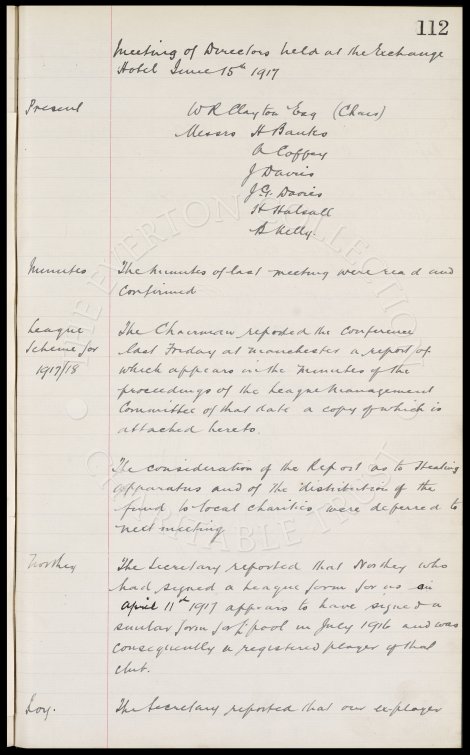 112
Meeting of Directors held at the Exchange
Hotel June 15th 1917
Present
W R Clayton Esq (Chair)
Messrs H Banks
A Coffey
J Davies
J. G. Davies
H Halsall
B Kelly.
Minutes
The Minutes of last meeting were read and
Confirmed
League
Scheme for
1917/18
The Chairman reported the Conference
last Friday at Manchester a report of
which appears in the Minutes of the
proceedings of the League Management
Committee of that date a copy of which is
attached hereto.
The consideration of the Report as to Heating
apparatus and of the distribution of the
fund to local charities were deferred to
next meeting
The Secretary reported that who
had signed a League form for us on
April 11th 1917 appears to have signed a
similar form for L'pool in July 1916 and was
consequently a registered player of that
club.
The Secretary reported that our explayer
THE EVERTON COLLECTION
CHARITABLE TRUST